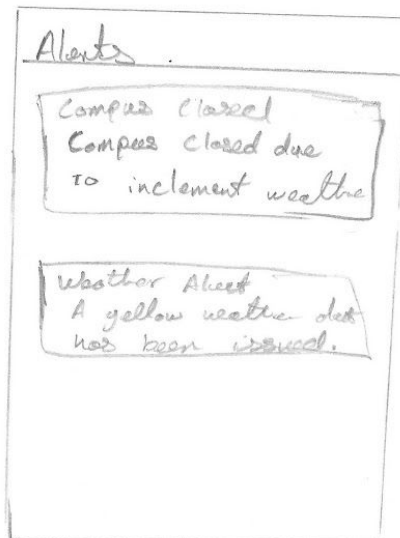 Alerts
Campus Closed
Campus Closed due
To inclement weathe
Weather Alert
A yellow weather alert
has been issued.